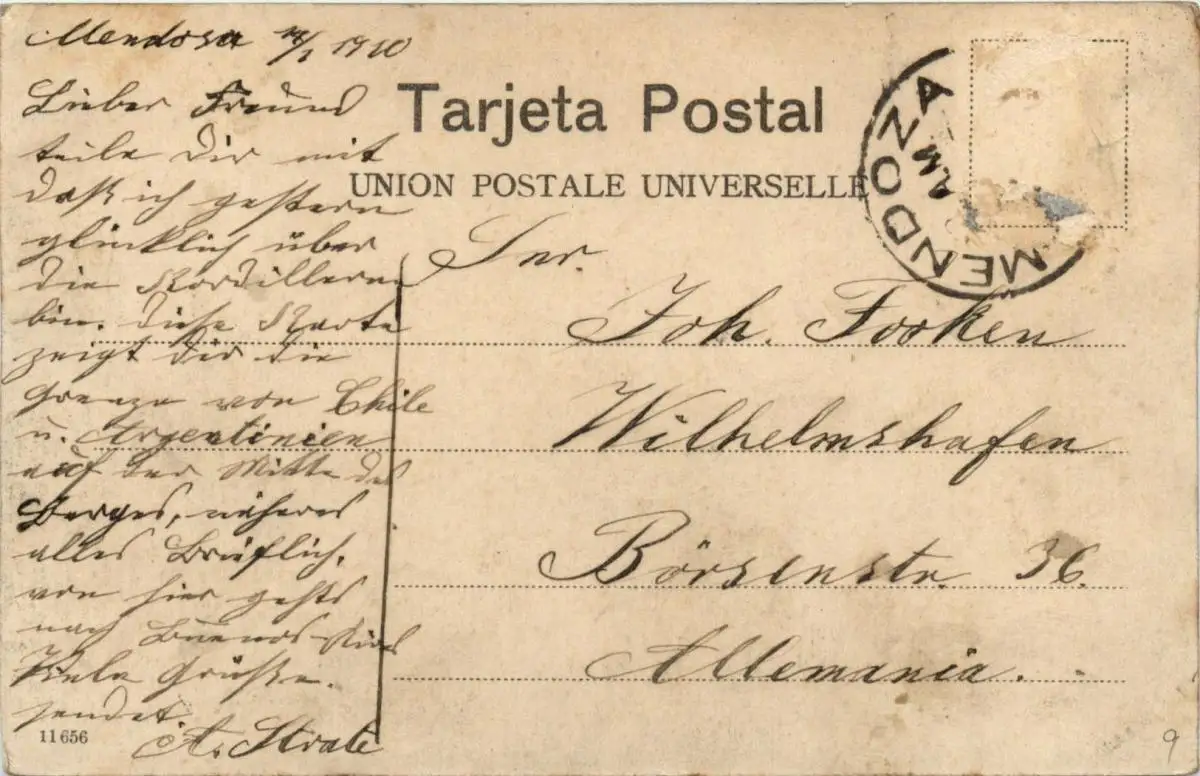 Mendosa 1910
Lieber Freund
teile Dir mit
daß ich gestern
glücklich über
die Kordilleren
bin. Diese Karte
zeigt dir die
Grenze von Chile
u. Argentinien
auf der Mitte des
Berges, näheres
alles Brieflich.
von hier gehts
nach Buenos-Aires
Viele Grüße.
sendet
A. Strate
11656
Tarjeta Postal
UNION POSTALE UNIVERSELLE
MENDOZA
AM
Snr.
Joh. Fooken
Wilhelmshafen
Börsenstr. 36.
Allemania.
9